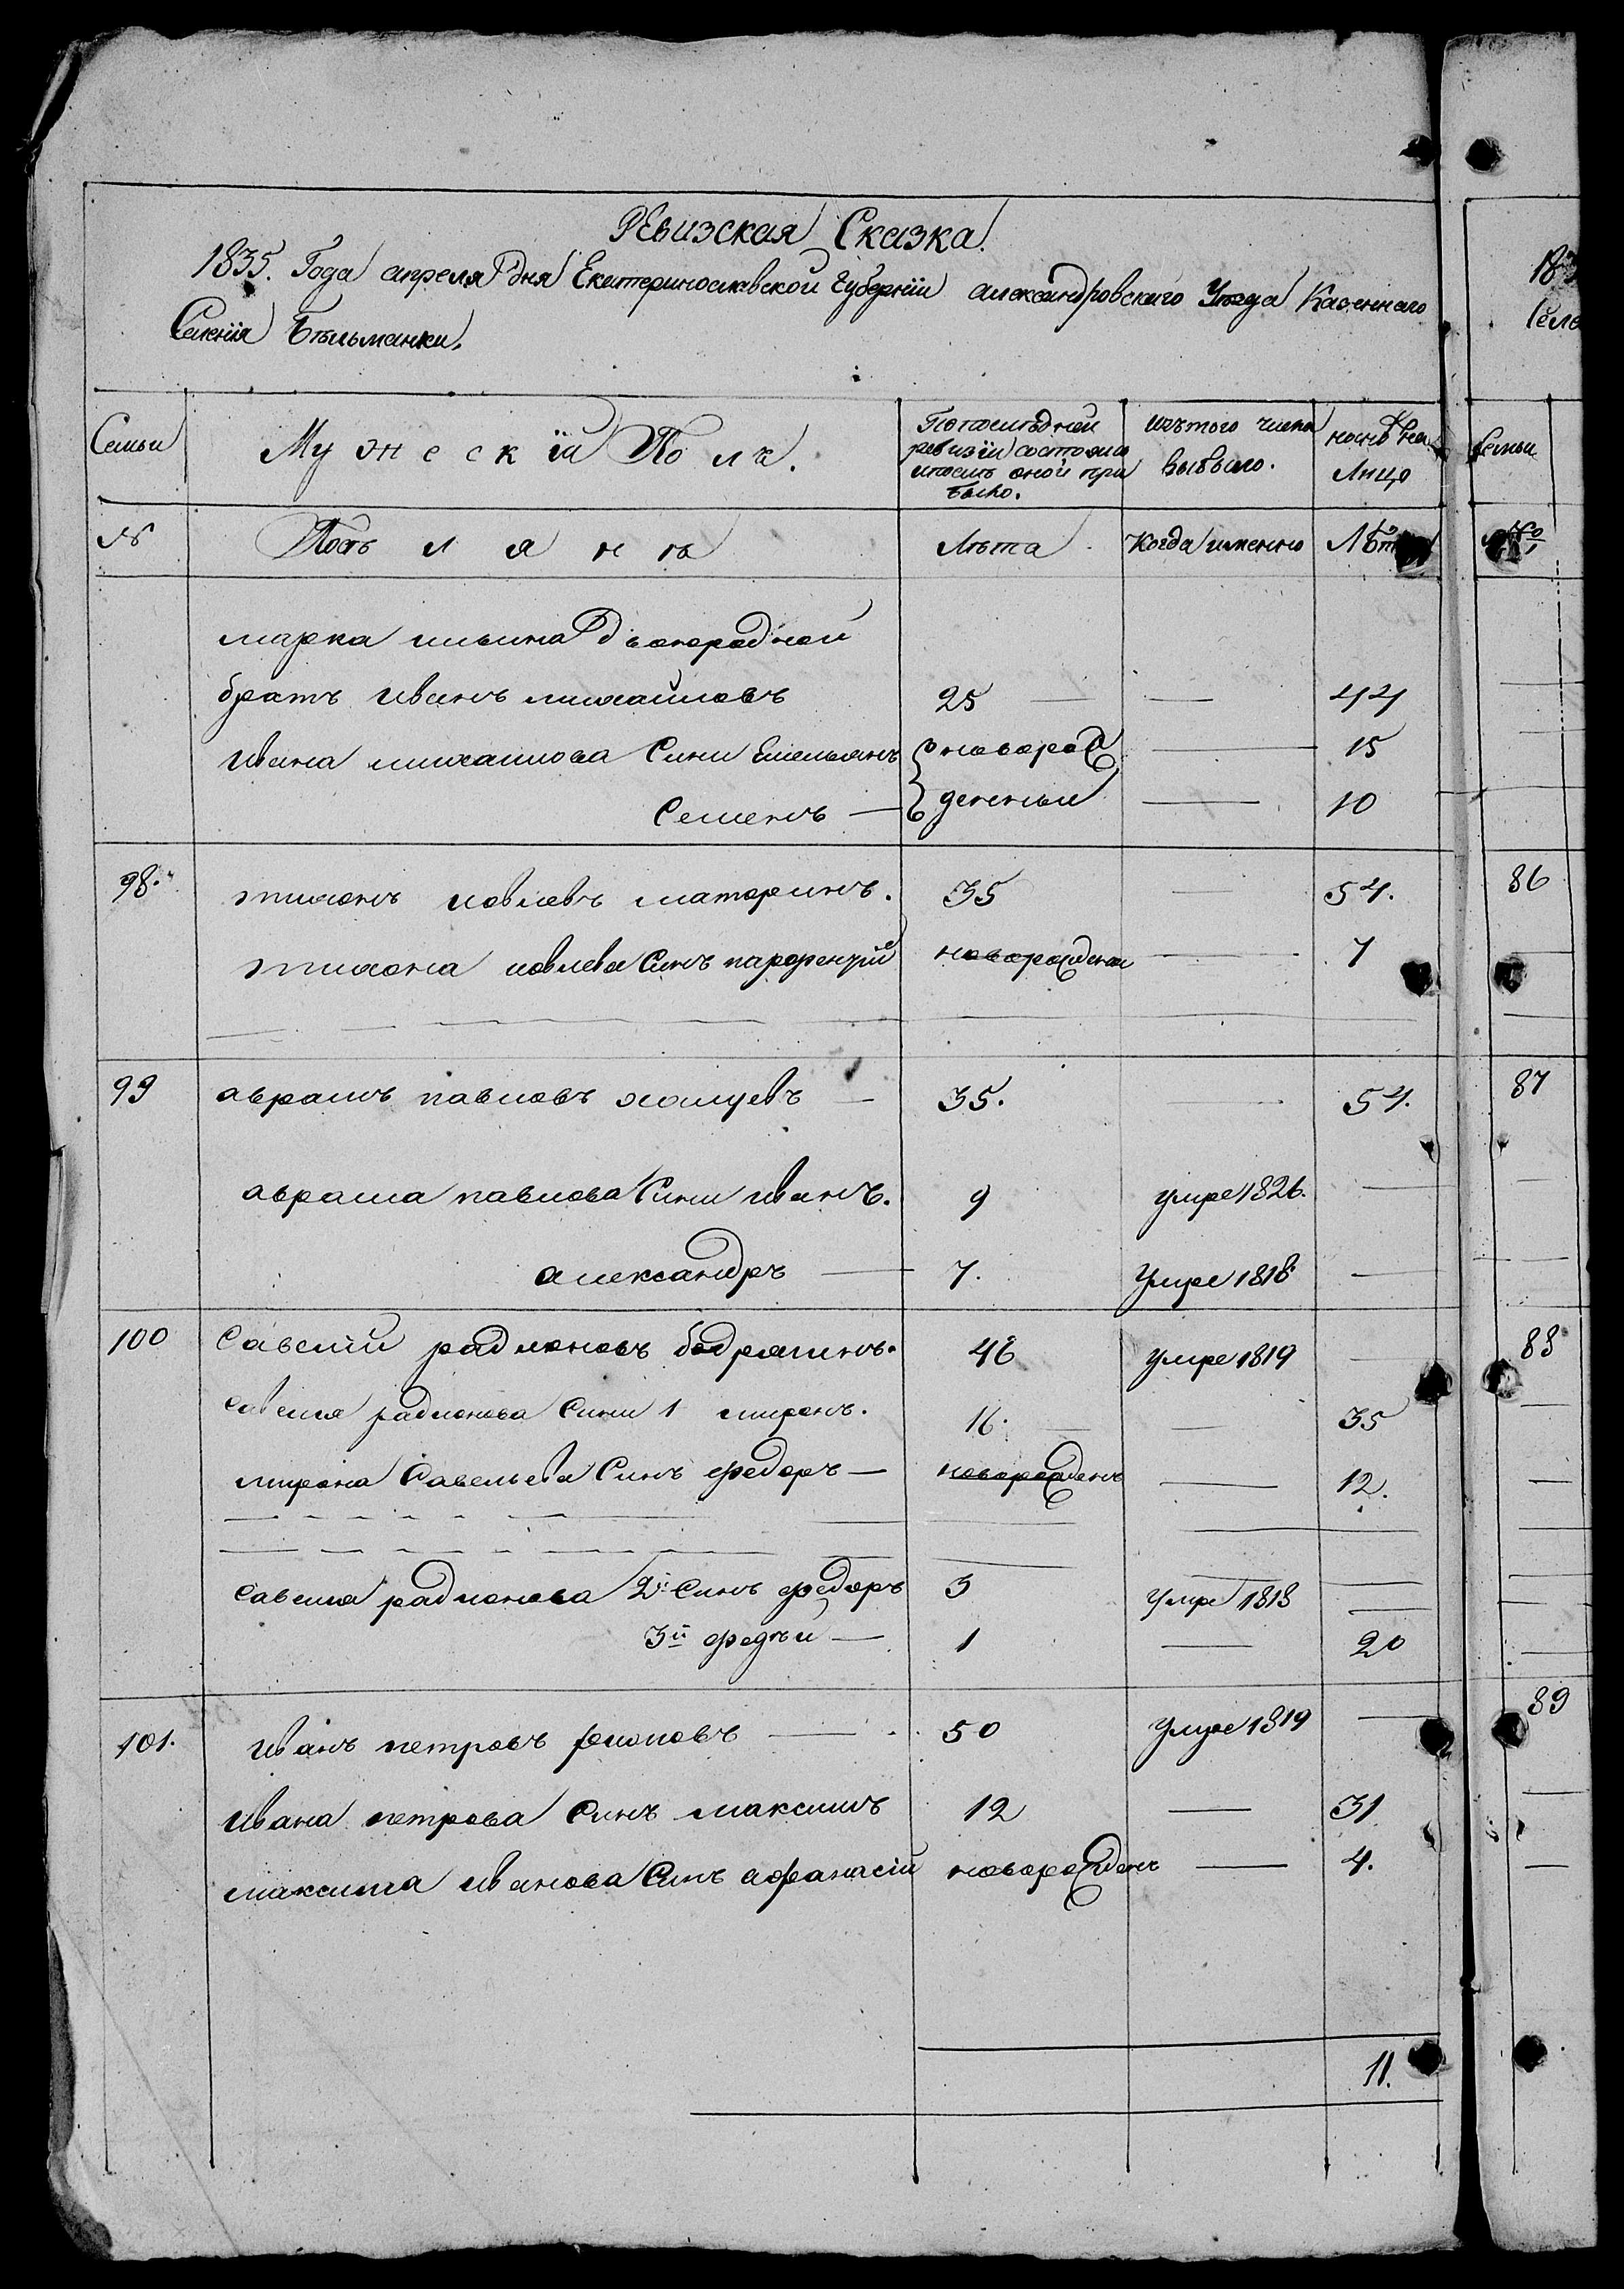 Ревизская Сказка.
1835. Года апреля дня Екатеринославской Губернии александровскаго Уезда Казеннаго
Селения Бѣльманки.
Семьи Мужескій Полъ. По последней ревизіи состояло и после оной прибыло. Изътого числа выбыло. ныне на Лицо
№ Поселяне Лѣта Когда именно Лѣта
марка ильина двоюродной
братъ иванъ михайловъ 25 — — 44
ивана михаилова Сыны Емельянъ новорож — 15
Семенъ — денныи — 10
98. тихонъ иовлевъ маторинъ. 35 — 54.
тихона иовлева Сынъ парфентий новорожденъ — 7
99 аврамъ павловъ — 35. — 54.
аврама павлова Сыны иванъ. 9 умре 1826. —
александръ — 7. Умре 1818 —
100 Савелий радионовъ бодрягинъ. 46 умре 1819 —
савелия радионова Сыны 1 миронъ. 16. — — 35
мирона Савельева Сынъ федоръ — новорожденъ — 12.
савелия радионова 2й Сынъ федоръ 3 умре 1818 —
3й — 1 — 20
101. иванъ петровъ — 50 Умре 1819 —
ивана петрова Сынъ максимъ 12 — 31
максима иванова Сынъ афанасій новорожденъ — 4.
11.
183
Селе
Семьи
№
86
87
88
89